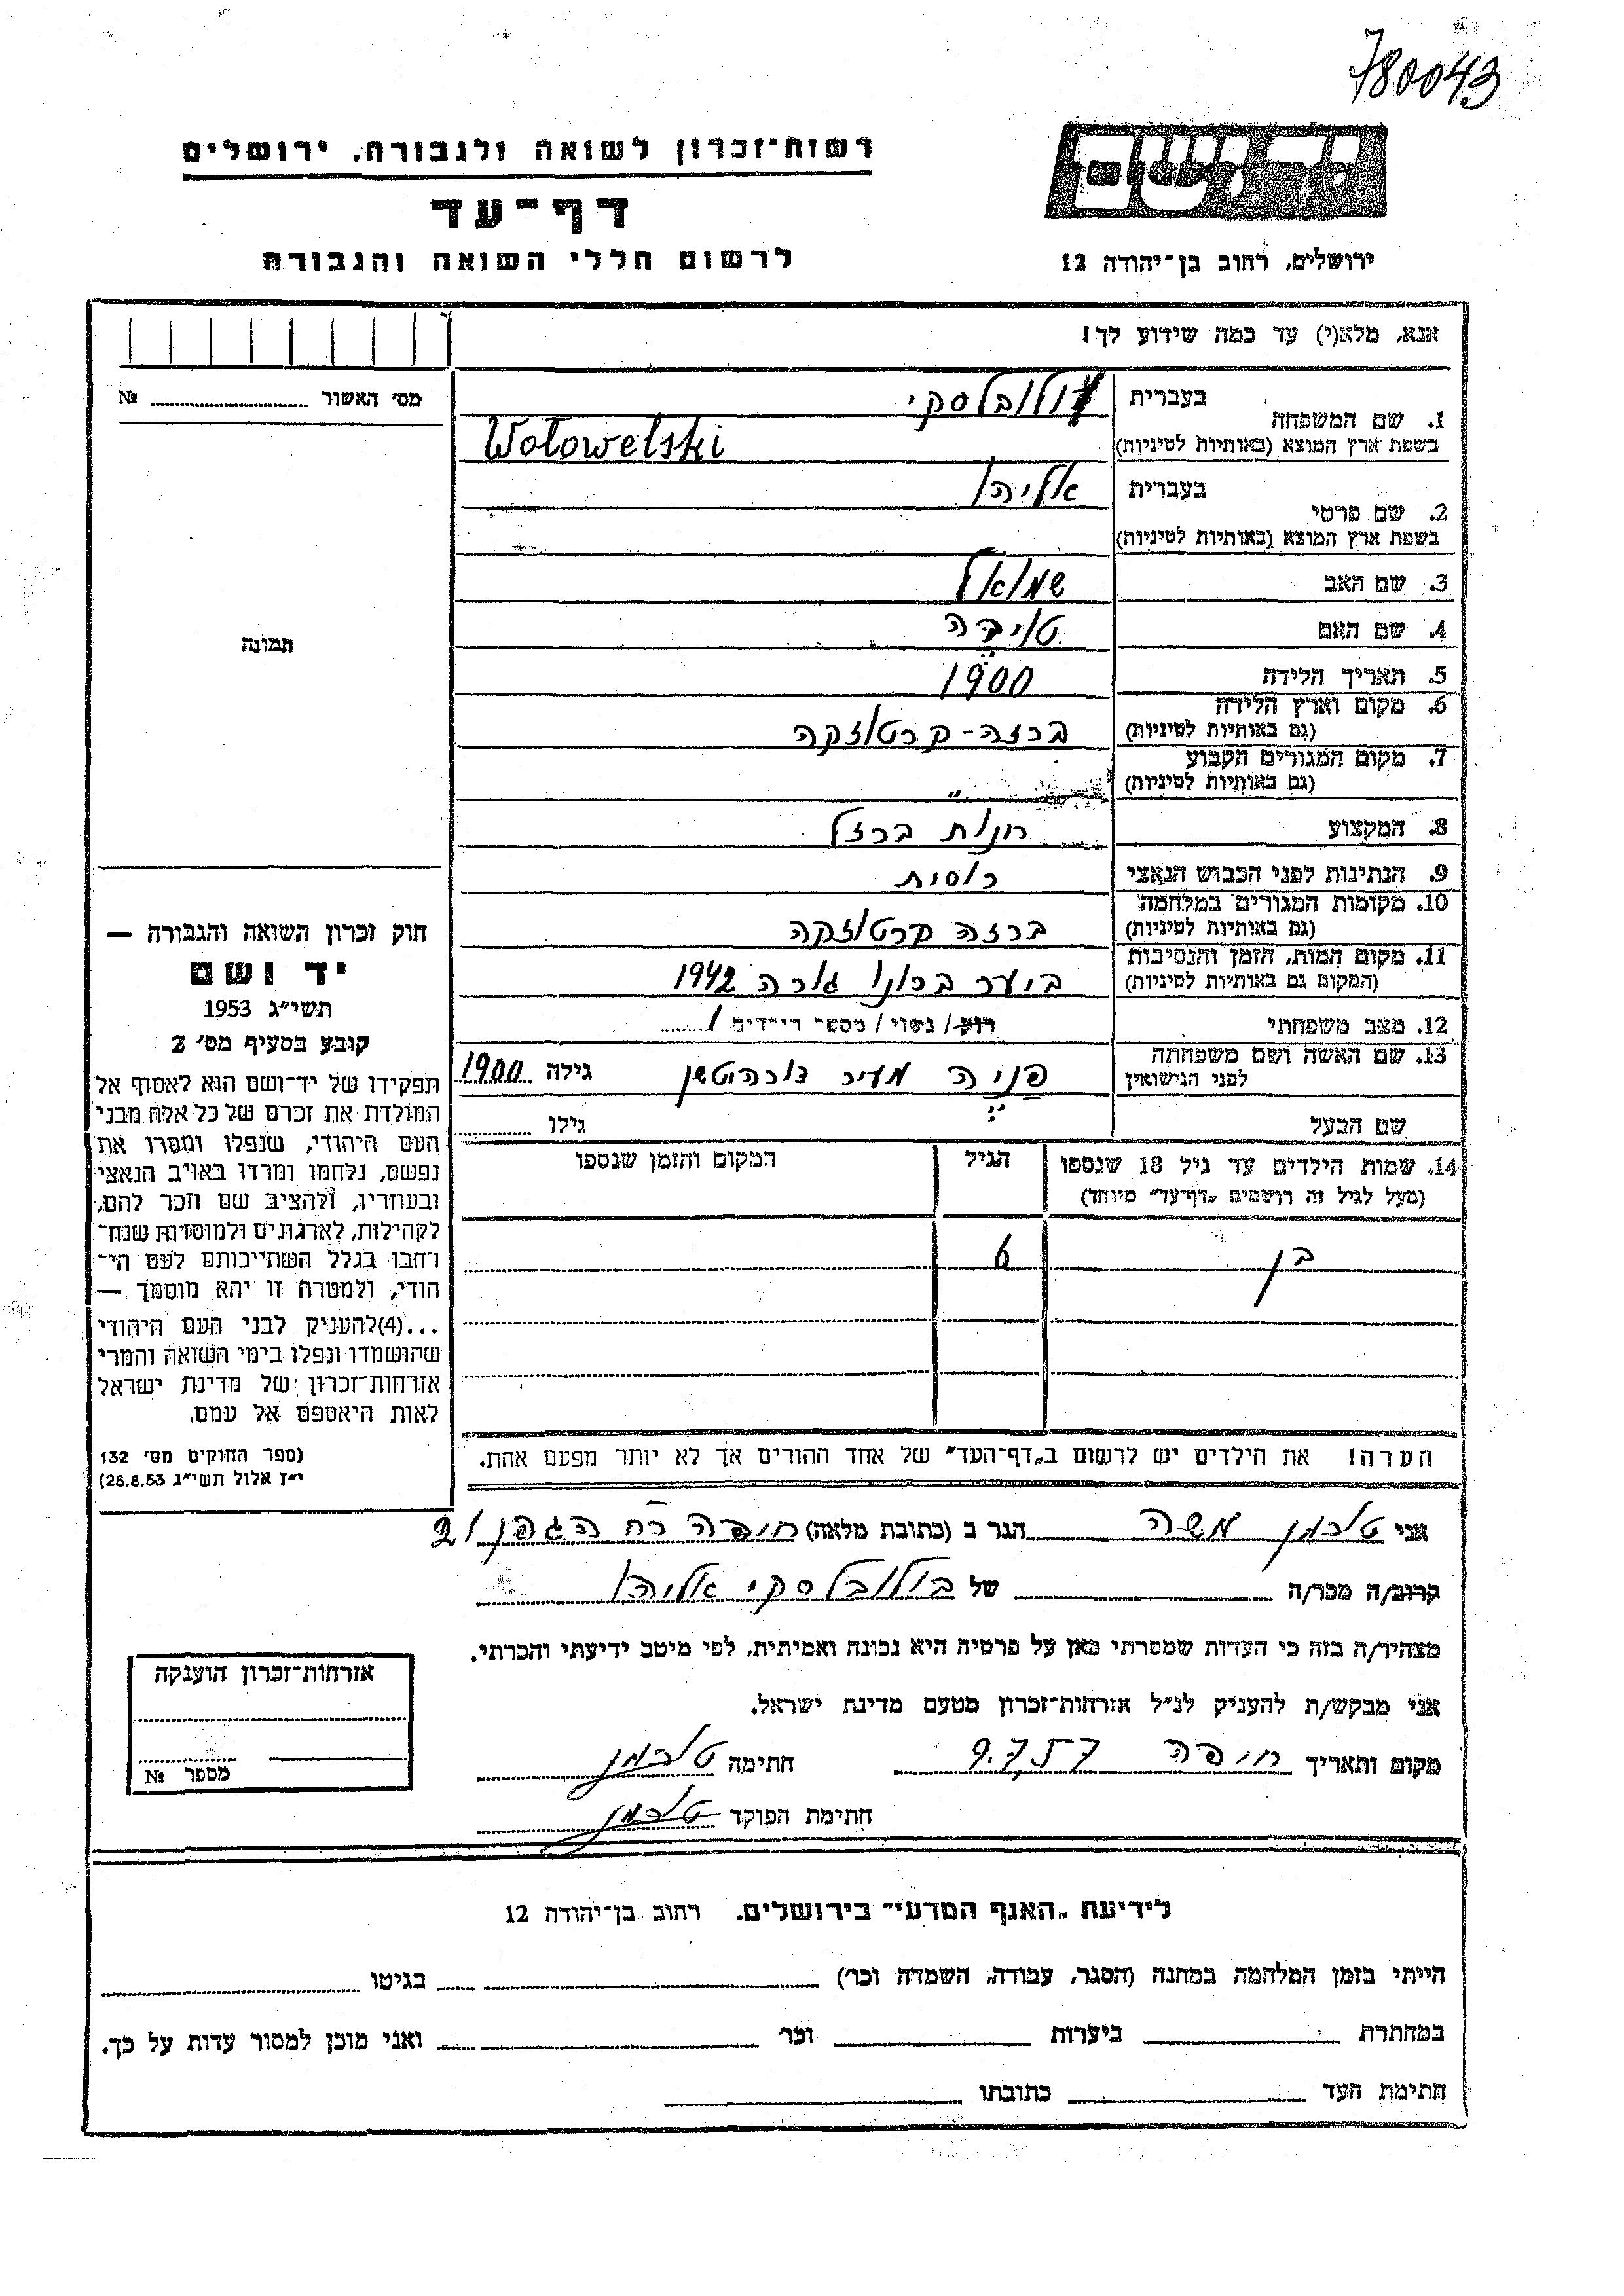 780043
רשות-זכרון לשואה ולגבורה, ירושלים
יד ושם
דף-עד
לרשום חללי השואה והגבורה
ירושלים, רחוב בן-יהודה 12
אנא, מלא(י) עד כמה שידוע לך!
מס' האשור № ........
1. שם המשפחה
בעברית וולובלסקי
בשפת ארץ המוצא (באותיות לטיניות) Wołowelski
2. שם פרטי
בעברית אליהו
בשפת ארץ המוצא (באותיות לטיניות)
3. שם האב שמואל
4. שם האם טויבה
5. תאריך הלידה 1900
6. מקום וארץ הלידה
(גם באותיות לטיניות) ברזה-קרטוזקה
7. מקום המגורים הקבוע
(גם באותיות לטיניות) "
8. המקצוע רונות ברזל
9. הנתינות לפני הכבוש הנאצי רוסית
10. מקומות המגורים במלחמה
(גם באותיות לטיניות) ברזה קרטוזקה
11. מקום המות, הזמן והנסיבות
(המקום גם באותיות לטיניות) ביער ברונו גורה 1942
12. מצב משפחתי רוק/ נשוי/ מספר הילדים 1
13. שם האשה ושם משפחתה
לפני הנשואין פניה מעיר גילה 1900
שם הבעל גילו
14. שמות הילדים עד גיל 18 שנספו
(מעל לגיל זה רושמים "דף-עד" מיוחד)
הגיל
המקום והזמן שנספו
בן 6
הערה! את הילדים יש לרשום ב"דף-העד" של אחד ההורים אך לא יותר מפעם אחת.
תמונה
חוק זכרון השואה והגבורה —
יד ושם
תשי"ג 1953
קובע בסעיף מס' 2
תפקידו של יד-ושם הוא לאסוף אל
המולדת את זכרם של כל אלה מבני
העם היהודי, שנפלו ומסרו את
נפשם, נלחמו ומרדו באויב הנאצי
ובעוזריו, ולהציב שם וזכר להם,
לקהילות, לארגונים ולמוסדות שנח-
רחבו בגלל השתייכותם לעם הי-
הודי, ולמטרה זו יהא מוסמך —
...(4)להעניק לבני העם היהודי
שהושמדו ונפלו בימי השואה והמרי
אזרחות-זכרון של מדינת ישראל
לאות היאספם אל עמם.
(ספר החוקים מס' 132
י"ז אלול תשי"ג 28.8.53)
אני טוכמן משה הגר ב (כתובת מלאה) חיפה רח הגפן 21
קרוב/ה מכר/ה של וולובלסקי אליהו
מצהיר/ה בזה כי העדות שמסרתי כאן על פרטיה היא נכונה ואמיתית, לפי מיטב ידיעתי והכרתי.
אני מבקש/ת להעניק לנ"ל אזרחות-זכרון מטעם מדינת ישראל.
מקום ותאריך חיפה 9.7.57 חתימה טוכמן
חתימת הפוקד טוכמן
אזרחות-זכרון הוענקה
מספר №
לידיעת "האגף המדעי" בירושלים. רחוב בן-יהודה 12
הייתי בזמן המלחמה במחנה (הסגר, עבודה, השמדה וכו') בגיטו
במחתרת ביערות וכו' ואני מוכן למסור עדות על כך.
חתימת העד כתובתו